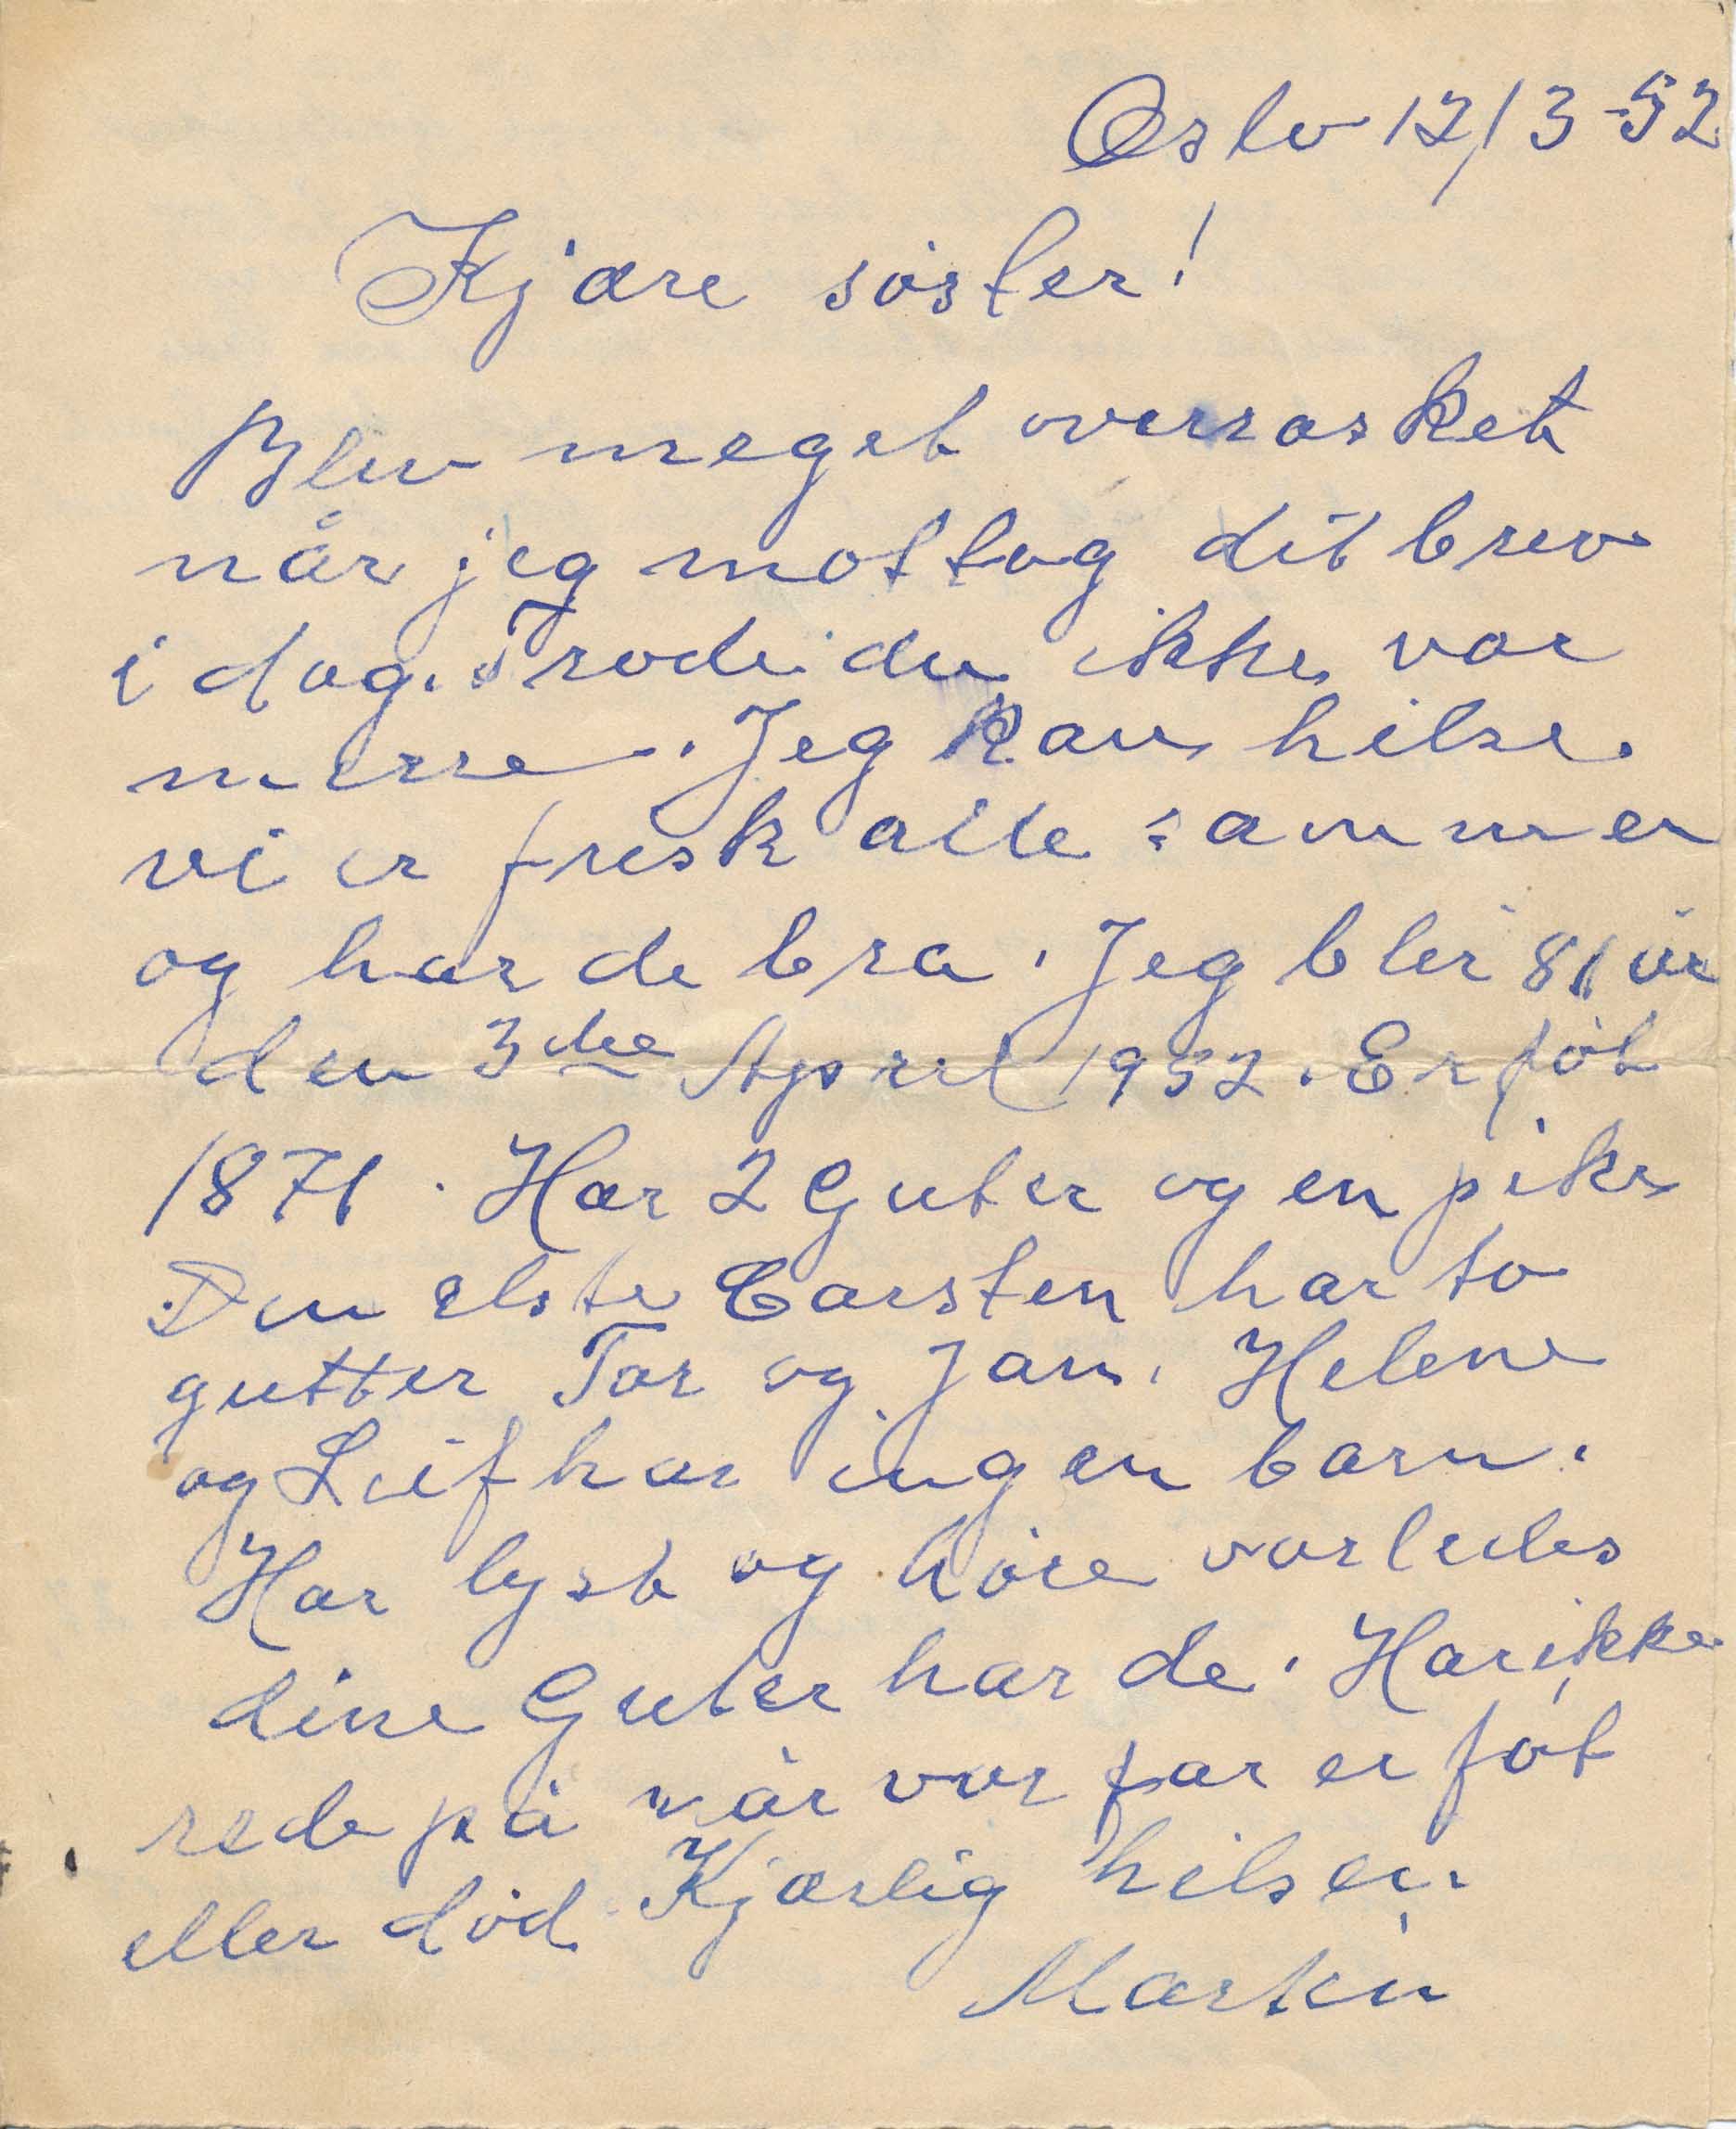 Oslo 12/3-52
Kjære söster!
Blev meget overrasket
når jeg mottog dit brev
i dag. Trode du ikke var
mere. Jeg kan hilse
vi er frisk alle sammen
og har de bra. Jeg blir 81 år
den 3die April 1952. Er föt
1871. Har 2 Guter og en pike
Den elste Carsten har to
gutter Tor og Jan. Helene
og Leif har ingen barn.
Har lyst og höre vorledes
dine Guter har de. Har ikke
rede på når vor far er föt
eller död. Kjærlig hilsen
Martin